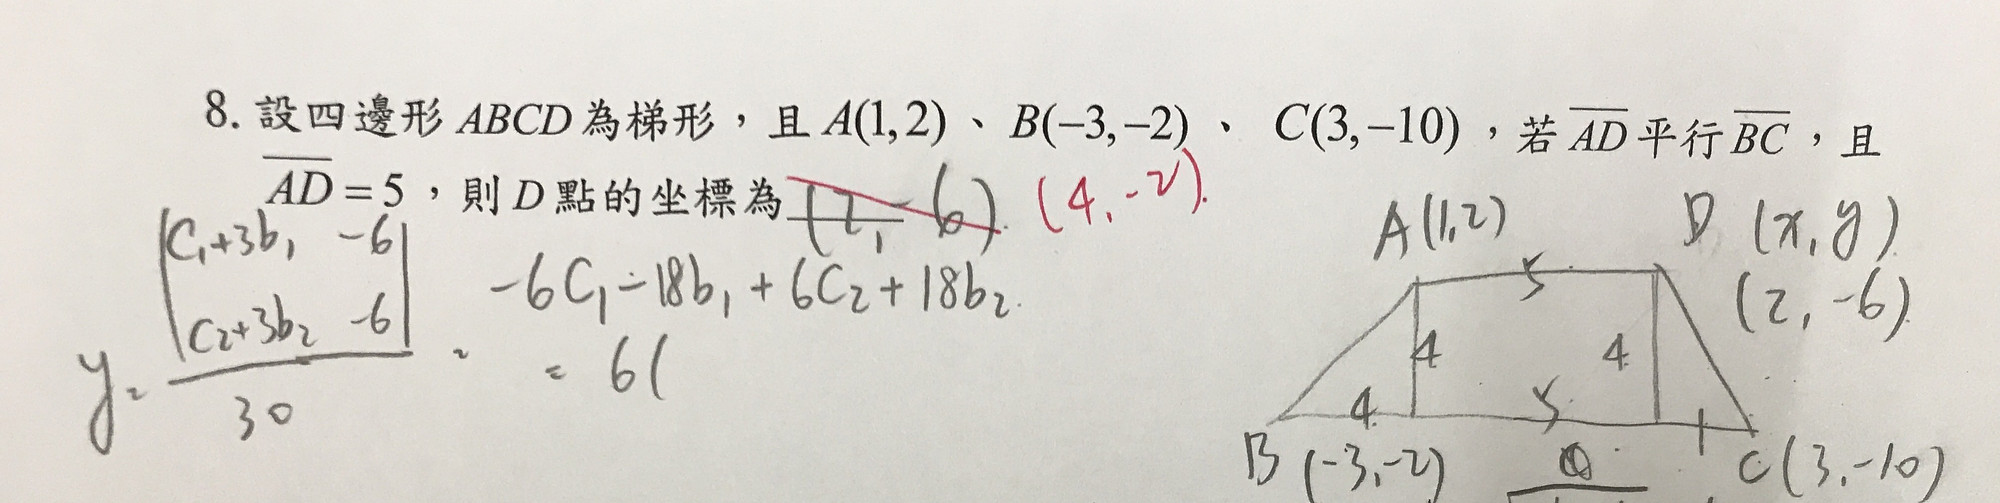 8. 設四邊形 ABCD 為梯形，且 A(1,2)、B(−3,−2)、C(3,−10)，若 AD 平行 BC，且
AD = 5，則 D 點的坐標為 (2,-6). (4,-2).
|C₁+3b₁ -6|
|C₂+3b₂ -6|
y= 30
-6C₁-18b₁+6C₂+18b₂.
= 6(
A(1,2) D (x,y)
5 (2,-6).
4 4
4 5 1
B (-3,-2) C(3,-10)